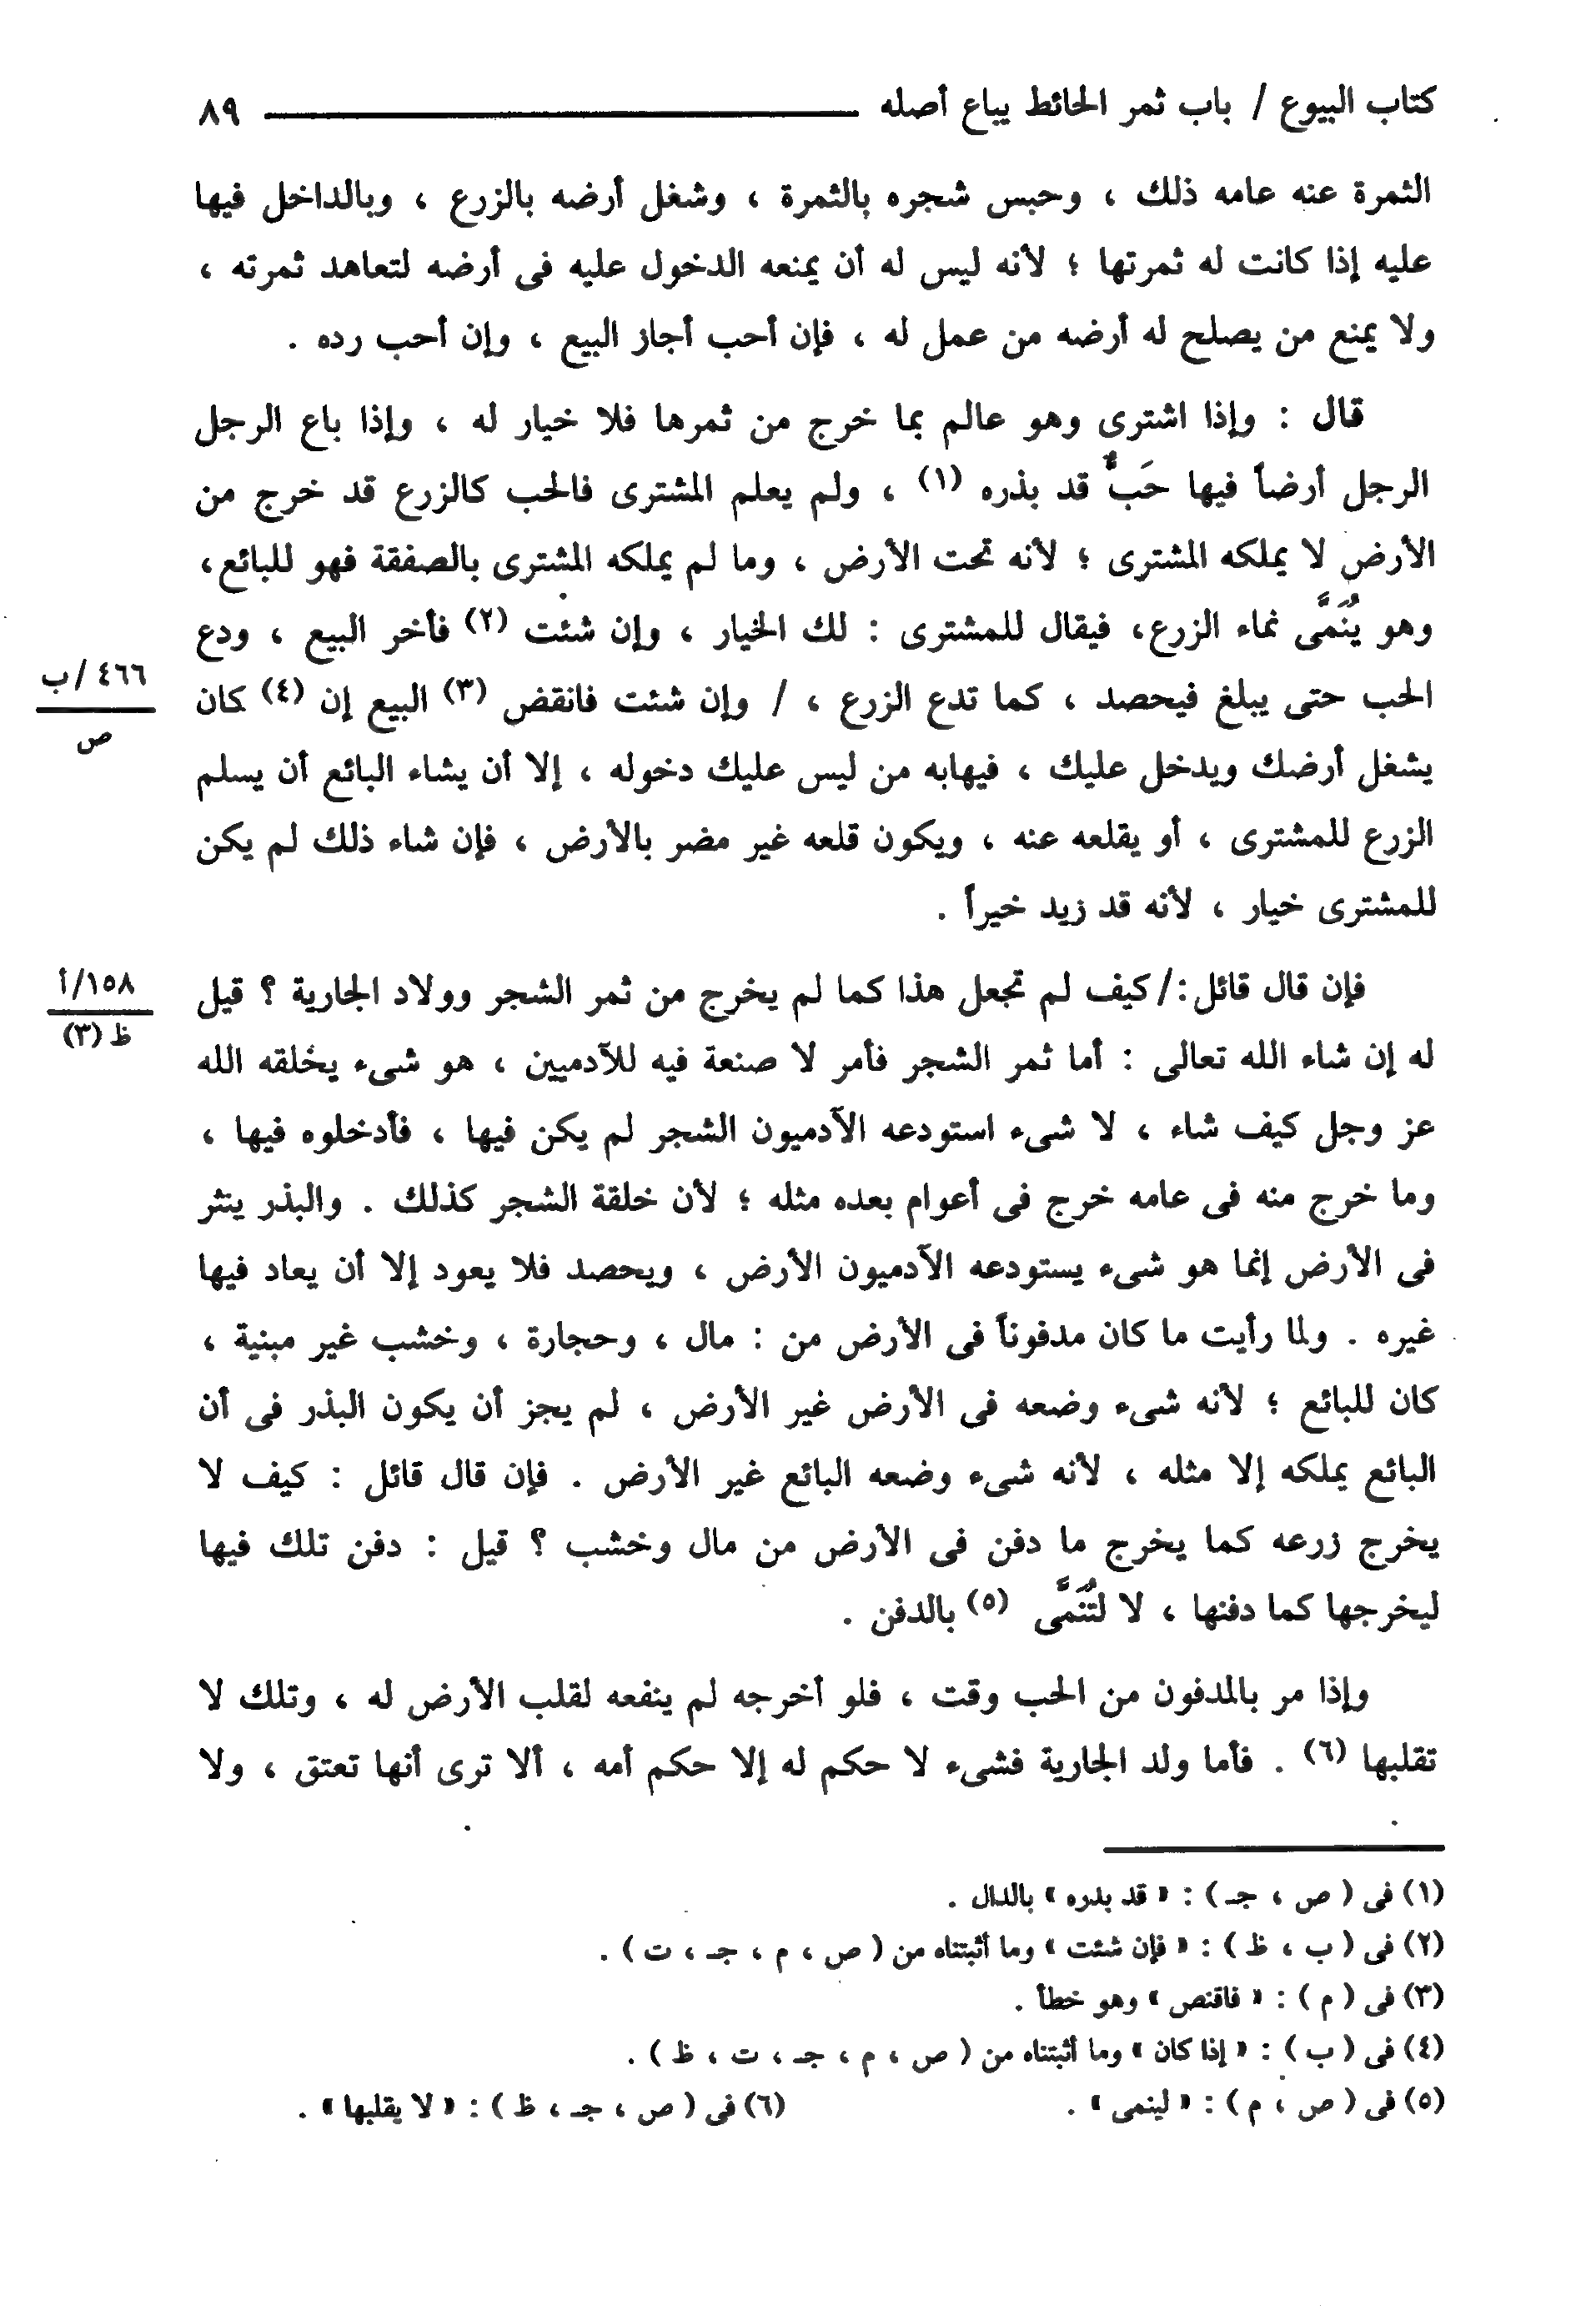 كتاب البيوع / باب ثمر الحائط يباع أصله ٨٩
الثمرة عنه عامه ذلك ، وحبس شجره بالثمرة ، وشغل أرضه بالزرع ، وبالداخل فيها
عليه إذا كانت له ثمرتها ؛ لأنه ليس له أن يمنعه الدخول عليه فى أرضه لتعاهد ثمرته ،
ولا يمنع من يصلح له أرضه من عمل له ، فإن أحب أجاز البيع ، وإن أحب رده .
قال : وإذا اشترى وهو عالم بما خرج من ثمرها فلا خيار له ، وإذا باع الرجل
الرجل أرضاً فيها حَبٌّ قد بذره (١) ، ولم يعلم المشترى فالحب كالزرع قد خرج من
الأرض لا يملكه المشترى ؛ لأنه تحت الأرض ، وما لم يملكه المشترى بالصفقة فهو للبائع،
وهو يُنَمَّى نماء الزرع، فيقال للمشترى : لك الخيار ، وإن شئت (٢) فأخر البيع ، ودع
٤٦٦ /ب
ص
الحب حتى يبلغ فيحصد ، كما تدع الزرع ، / وإن شئت فانقض (٣) البيع إن (٤) كان
يشغل أرضك ويدخل عليك ، فيهابه من ليس عليك دخوله ، إلا أن يشاء البائع أن يسلم
الزرع للمشترى ، أو يقلعه عنه ، ويكون قلعه غير مضر بالأرض ، فإن شاء ذلك لم يكن
للمشترى خيار ، لأنه قد زيد خيراً .
١٥٨/أ
ظ (٣)
فإن قال قائل:/ كيف لم تجعل هذا كما لم يخرج من ثمر الشجر وولاد الجارية ؟ قيل
له إن شاء الله تعالى : أما ثمر الشجر فأمر لا صنعة فيه للآدميين ، هو شىء يخلقه الله
عز وجل كيف شاء ، لا شىء استودعه الآدميون الشجر لم يكن فيها ، فأدخلوه فيها ،
وما خرج منه فى عامه خرج فى أعوام بعده مثله ؛ لأن خلقة الشجر كذلك . والبذر ينثر
فى الأرض إنما هو شىء يستودعه الآدميون الأرض ، ويحصد فلا يعود إلا أن يعاد فيها
غيره . ولما رأيت ما كان مدفوناً فى الأرض من : مال ، وحجارة ، وخشب غير مبنية ،
كان للبائع ؛ لأنه شىء وضعه فى الأرض غير الأرض ، لم يجز أن يكون البذر فى أن
البائع يملكه إلا مثله ، لأنه شىء وضعه البائع غير الأرض . فإن قال قائل : كيف لا
يخرج زرعه كما يخرج ما دفن فى الأرض من مال وخشب ؟ قيل : دفن تلك فيها
ليخرجها كما دفنها ، لا لتُنَمَّى (٥) بالدفن .
وإذا مر بالمدفون من الحب وقت ، فلو أخرجه لم ينفعه لقلب الأرض له ، وتلك لا
تقلبها (٦) . فأما ولد الجارية فشىء لا حكم له إلا حكم أمه ، ألا ترى أنها تعتق ، ولا
(١) فى ( ص ، جـ ) : « قد بدره » بالدال .
(٢) فى ( ب ، ظ ) : « فإن شئت » وما أثبتناه من ( ص ، م ، جـ ، ت ) .
(٣) فى ( م ) : « فاقنص » وهو خطأ .
(٤) فى ( ب ) : « إذا كان » وما أثبتناه من ( ص ، م ، جـ ، ت ، ظ ) .
(٥) فى ( ص ، م ) : « لينمى » . (٦) فى ( ص ، جـ ، ظ ) : « لا يقلبها » .